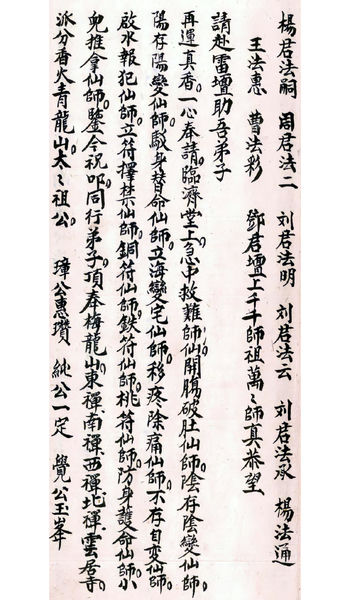 楊君法嗣 周君法二 刘君法明 刘君法云 刘君法承 楊法通
王法惠 曹法彩 鄧君壇上千千師祖萬〻師真恭望
請赴雷壇助吾弟子
再運真香。一心奉請。臨濟堂上。急中救難師仙。開腸破肚仙師。陰存陰變仙師。
陽存陽變仙師。馭身替命仙師。立海變宅仙師。移疼除痛仙師。不存自变仙師。
啟水報犯仙師。立符擇禁仙師。銅符仙師。鉄符仙師。桃符仙師。防身護命仙師。小
兒推拿仙師。鑒今祝叩。同行弟子。頂奉梅龍山。東禪。南禪。西禪。北禪。雲居寺。
派分香火青龍山。太〻祖公。 璋公惠瓚 純公一定 覺公玉峯